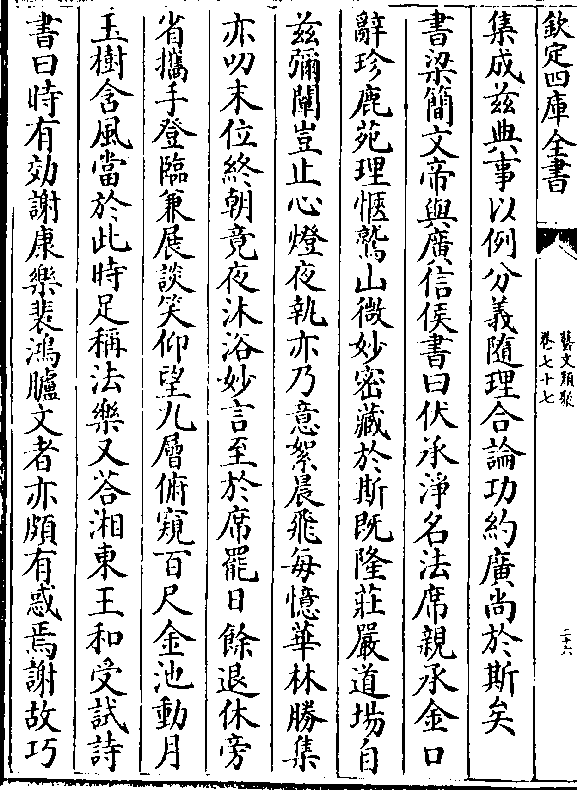 欽定四庫全書
藝文類聚
卷七十七
二十六
集成兹典事以例分義隨理合論功約廣尚於斯矣
書梁簡文帝與廣信侯書曰伏承淨名法席親承金口
辭珍鹿苑理愜鷲山微妙密藏於斯既隆莊嚴道場自
兹彌闡豈止心燈夜執亦乃意絮晨飛每憶華林勝集
亦叨末位終朝竟夜沐浴妙言至於席罷日餘退休旁
省攜手登臨兼展談笑仰望九層俯窺百尺金池動月
玉樹含風當於此時足稱法樂又答湘東王和受試詩
書曰時有効謝康樂裴鴻臚文者亦頗有惑焉謝故巧